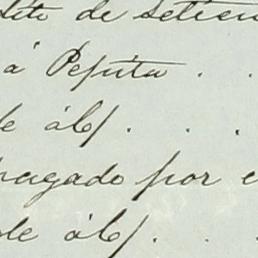 dito de setiem
á Pepita . .
de áb/. . .
pagado por e
de áb/. . .